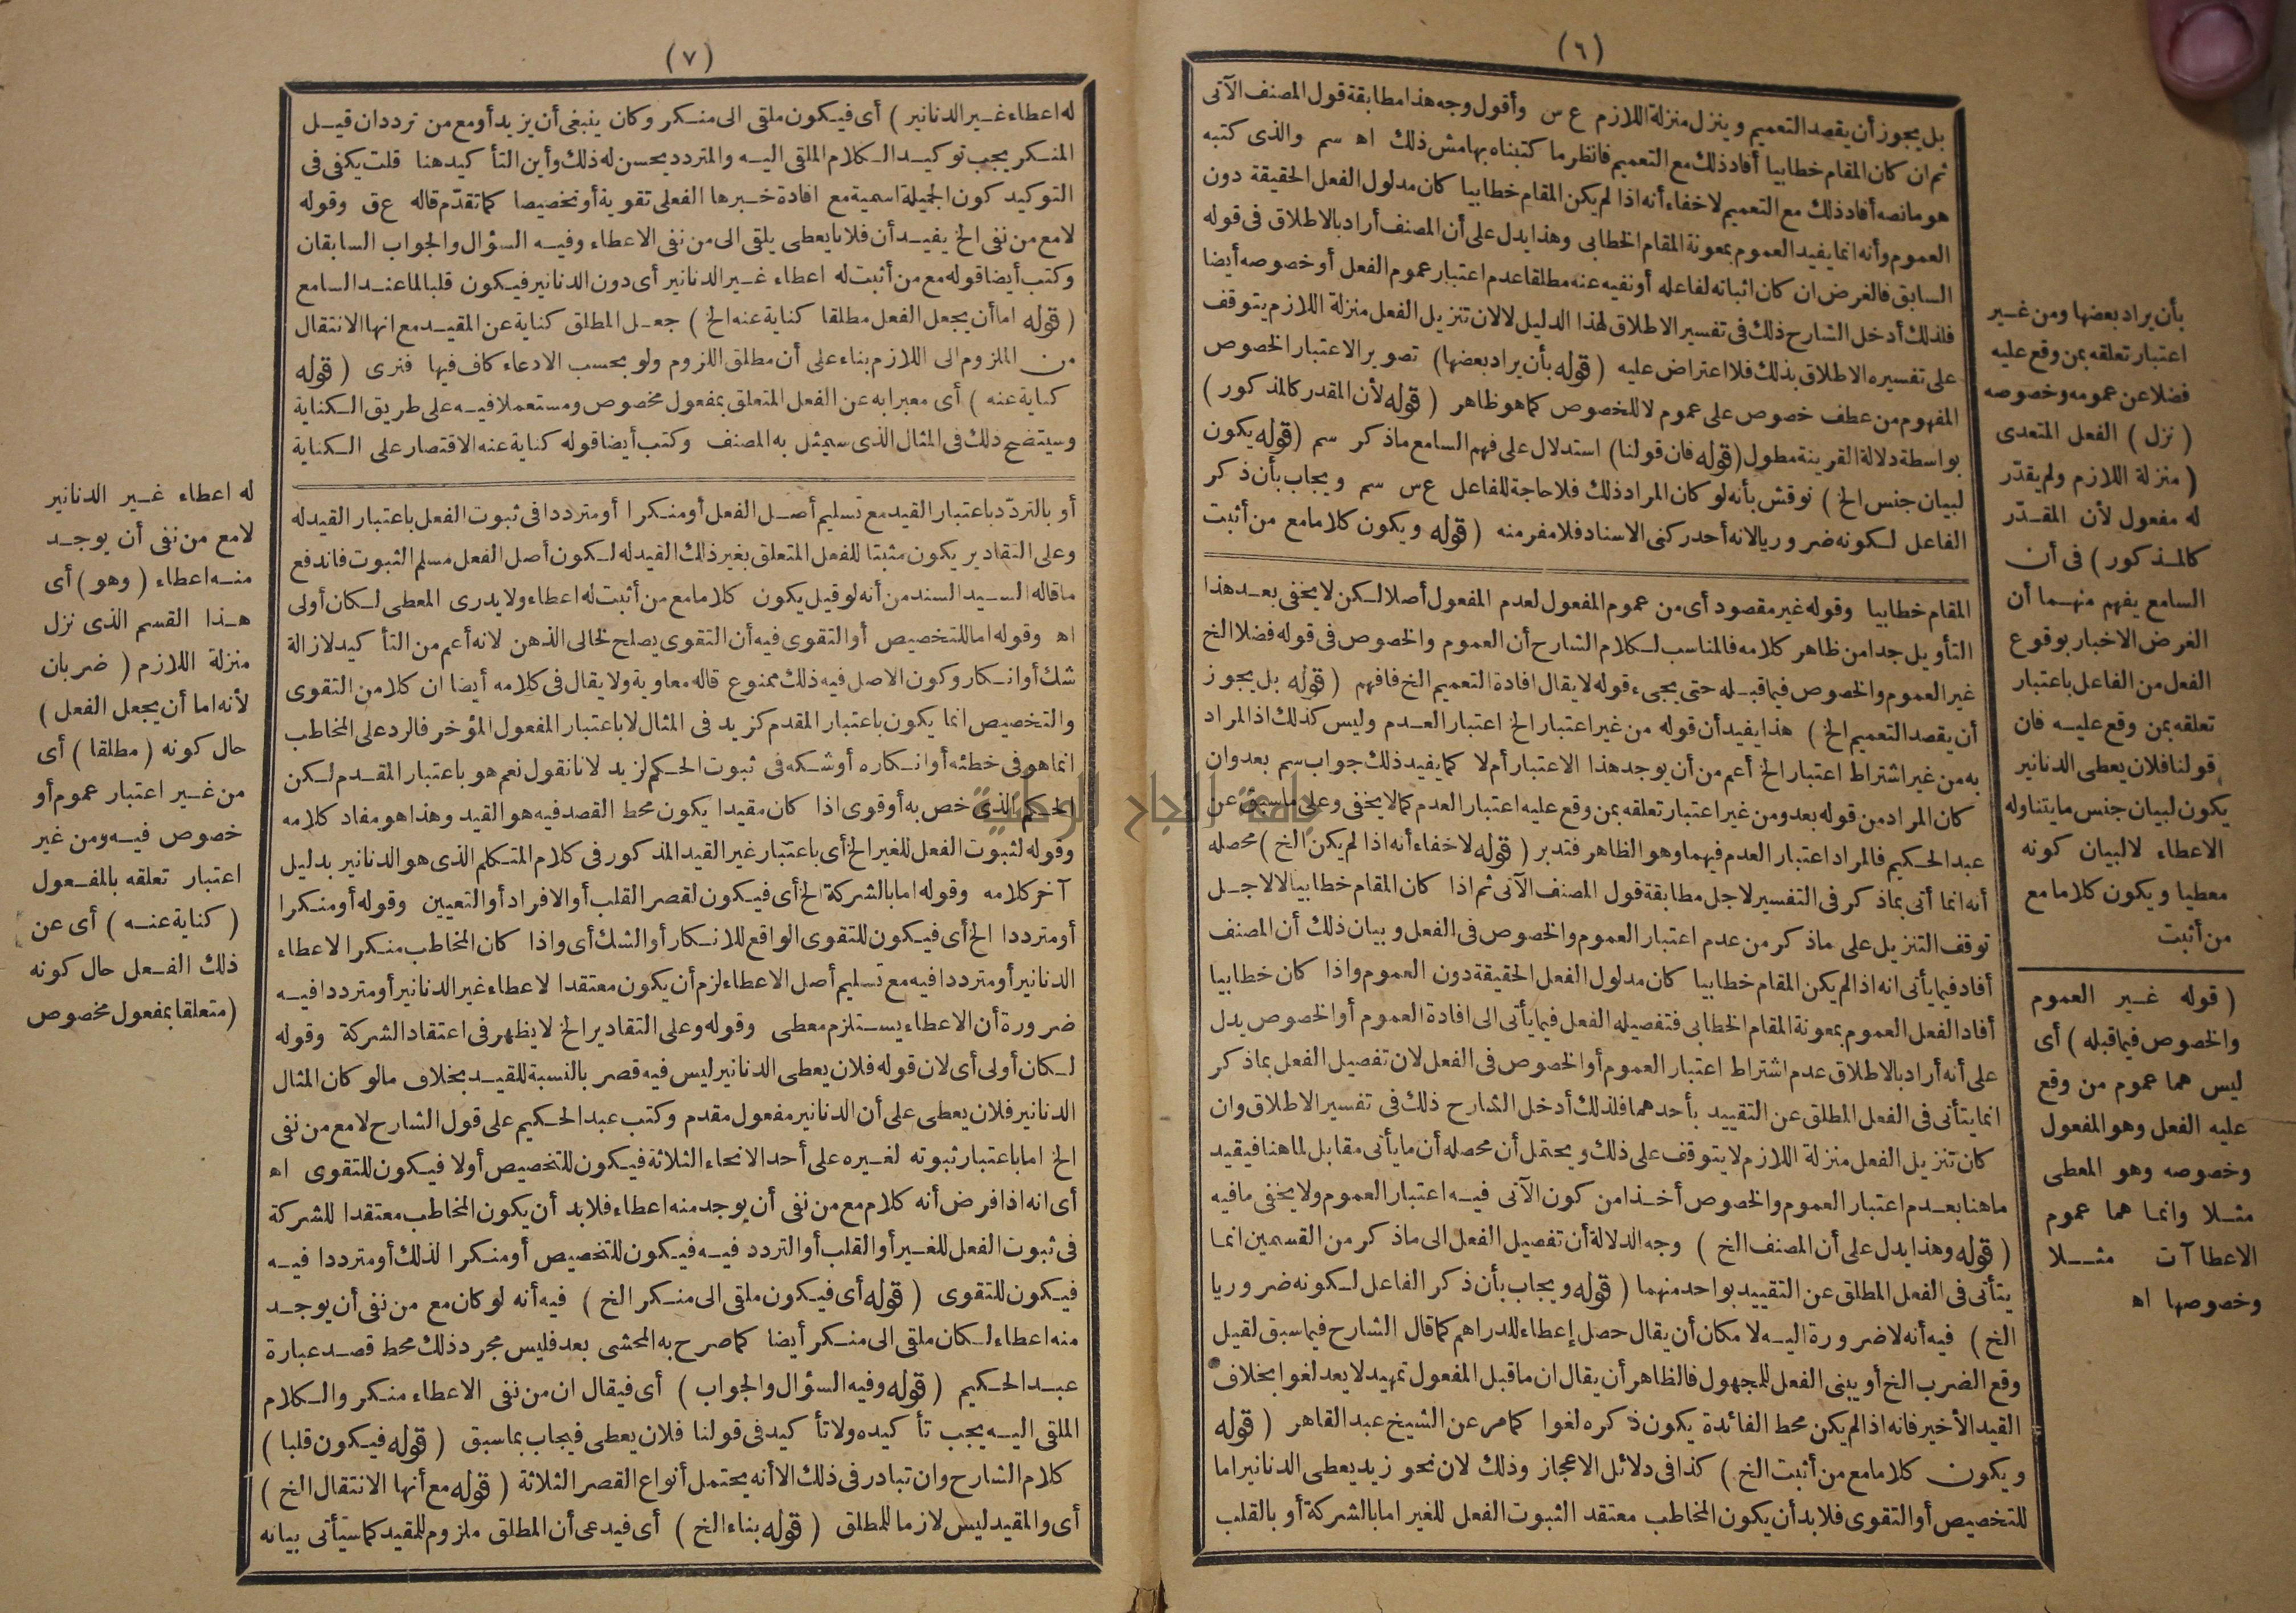 (٦)
بل يجوز أن يقصد التعميم وينزل منزلة اللازم ع س وأقول وجه هذا مطابقة قول المصنف الآتى
ثم ان كان المقام خطابيا أفاد ذلك مع التعميم فانظر ما كتبناه بهامش ذلك اه سم والذى كتبه
هو مانصه أفاد ذلك مع التعميم لاخفاء أنه اذا لم يكن المقام خطابيا كان مدلول الفعل الحقيقة دون
العموم وأنه انما يفيد العموم بمعونة المقام الخطابى وهذا يدل على أن المصنف أراد بالاطلاق فى قوله
السابق فالغرض ان كان اثباته لفاعله أو نفيه عنه مطلقا عدم اعتبار عموم الفعل أو خصوصه أيضا
فلذلك أدخل الشارح ذلك فى تفسير الاطلاق لهذا الدليل لا لان تنزيل الفعل منزلة اللازم يتوقف
على تفسيره الاطلاق بذلك فلا اعتراض عليه (قوله بأن يراد بعضها) تصوير الاعتبار الخصوص
المفهوم من عطف خصوص على عموم لا للخصوص كما هو ظاهر (قوله لأن المقدر كالمذكور)
بواسطة دلالة القرينة مطول (قوله فان قولنا) استدلال على فهم السامع ماذكر سم (قوله يكون
لبيان جنس الخ) نوقش بأنه لو كان المراد ذلك فلا حاجة للفاعل ع س سم ويجاب بأن ذكر
الفاعل لكونه ضروريا لانه أحد ركنى الاسناد فلا مفر منه (قوله ويكون كلاما مع من أثبت
المقام خطابيا وقوله غير مقصود أى من عموم المفعول لعدم المفعول أصلا لكن لا يخفى بعد هذا
التأويل جدا من ظاهر كلامه فالمناسب لكلام الشارح أن العموم والخصوص فى قوله فضلا الخ
غير العموم والخصوص فيما قبله حتى يجىء قوله لا يقال افادة التعميم الخ فافهم (قوله بل يجوز
أن يقصد التعميم الخ) هذا يفيد أن قوله من غير اعتبار الخ اعتبار العدم وليس كذلك اذ المراد
به من غير اشتراط اعتبار الخ أعم من أن يوجد هذا الاعتبار أم لا كما يفيد ذلك جواب سم بعد وان
كان المراد من قوله بعد ومن غير اعتبار تعلقه بمن وقع عليه اعتبار العدم كما لا يخفى وعلى ماسبق عن
عبد الحكيم فالمراد اعتبار العدم فيهما وهو الظاهر فتدبر (قوله لاخفاء أنه اذا لم يكن الخ) محصله
أنه انما أتى بماذكر فى التفسير لاجل مطابقة قول المصنف الآتى ثم اذا كان المقام خطابيا لا لاجل
توقف التنزيل على ماذكر من عدم اعتبار العموم والخصوص فى الفعل وبيان ذلك أن المصنف
أفاد فيما يأتى انه اذا لم يكن المقام خطابيا كان مدلول الفعل الحقيقة دون العموم واذا كان خطابيا
أفاد الفعل العموم بمعونة المقام الخطابى فتفصيله الفعل فيما يأتى الى افادة العموم أو الخصوص يدل
على أنه أراد بالاطلاق عدم اشتراط اعتبار العموم أو الخصوص فى الفعل لان تفصيل الفعل بماذكر
انما يتأتى فى الفعل المطلق عن التقييد بأحدهما فلذلك أدخل الشارح ذلك فى تفسير الاطلاق وان
كان تنزيل الفعل منزلة اللازم لا يتوقف على ذلك ويحتمل أن محصله أن ما يأتى مقابل لما هنا فيقيد
ماهنا بعدم اعتبار العموم والخصوص أخذا من كون الآتى فيه اعتبار العموم ولا يخفى مافيه
(قوله وهذا يدل على أن المصنف الخ) وجه الدلالة أن تفصيل الفعل الى ماذكر من القسمين انما
يتأتى فى الفعل المطلق عن التقييد بواحد منهما (قوله ويجاب بأن ذكر الفاعل لكونه ضروريا
الخ) فيه أنه لاضرورة اليه لامكان أن يقال حصل إعطاء للدراهم كما قال الشارح فيما سبق لقيل
وقع الضرب الخ أو يبنى الفعل للمجهول فالظاهر أن يقال ان ماقبل المفعول تمهيد لا يعد لغوا بخلاف
القيد الأخير فانه اذا لم يكن محط الفائدة يكون ذكره لغوا كما مر عن الشيخ عبد القاهر (قوله
ويكون كلاما مع من أثبت الخ) كذا فى دلائل الاعجاز وذلك لان نحو زيد يعطى الدنانير اما
للتخصيص أو التقوى فلا بد أن يكون المخاطب معتقد الثبوت الفعل للغير اما بالشركة أو بالقلب
بأن يراد بعضها ومن غير
اعتبار تعلقه بمن وقع عليه
فضلا عن عمومه وخصوصه
(نزل) الفعل المتعدى
(منزلة اللازم ولم يقدّر
له مفعول لأن المقدّر
كالمذكور) فى أن
السامع يفهم منهما أن
الغرض الاخبار بوقوع
الفعل من الفاعل باعتبار
تعلقه بمن وقع عليه فان
قولنا فلان يعطى الدنانير
يكون لبيان جنس ما يتناوله
الاعطاء لا لبيان كونه
معطيا ويكون كلاما مع
من أثبت
(قوله غير العموم
والخصوص فيما قبله) أى
ليس هما عموم من وقع
عليه الفعل وهو المفعول
وخصوصه وهو المعطى
مثلا وانما هما عموم
الاعطاآت مثلا
وخصوصها اه
(٧)
له اعطاء غير الدنانير) أى فيكون ملقى الى منكر وكان ينبغى أن يزيد أو مع من تردد ان قيل
المنكر يجب توكيد الكلام الملقى اليه والمتردد يحسن له ذلك وأين التأكيد هنا قلت يكفى فى
التوكيد كون الجملة اسمية مع افادة خبرها الفعلى تقوية أو تخصيصا كما تقدّم قاله ع ق وقوله
لا مع من نفى الخ يفيد أن فلانا يعطى يلقى الى من نفى الاعطاء وفيه السؤال والجواب السابقان
وكتب أيضا قوله مع من أثبت له اعطاء غير الدنانير أى دون الدنانير فيكون قلبا لما عند السامع
(قوله اما أن يجعل الفعل مطلقا كناية عنه الخ) جعل المطلق كناية عن المقيد مع انها الانتقال
من الملزوم الى اللازم بناء على أن مطلق اللزوم ولو بحسب الادعاء كاف فيها فنرى (قوله
كناية عنه) أى معبرا به عن الفعل المتعلق بمفعول مخصوص ومستعملا فيه على طريق الكناية
وسيتضح ذلك فى المثال الذى سيمثل به المصنف وكتب أيضا قوله كناية عنه الاقتصار على الكناية
أو بالتردّد باعتبار القيد مع تسليم أصل الفعل أو منكرا أو مترددا فى ثبوت الفعل باعتبار القيد له
وعلى التقادير يكون مثبتا للفعل المتعلق بغير ذلك القيد له لكون أصل الفعل مسلم الثبوت فاندفع
ما قاله السيد السند من أنه لو قيل يكون كلاما مع من أثبت له اعطاء ولا يدرى المعطى لكان أولى
اه وقوله اما للتخصيص أو التقوى فيه أن التقوى يصلح لخالى الذهن لانه أعم من التأكيد لازالة
شك أو انكار وكون الاصل فيه ذلك ممنوع قاله معاوية ولا يقال فى كلامه أيضا ان كلا من التقوى
والتخصيص انما يكون باعتبار المقدم كزيد فى المثال لا باعتبار المفعول المؤخر فالرد على المخاطب
انما هو فى خطئه أو انكاره أو شكه فى ثبوت الحكم لزيد لانا نقول نعم هو باعتبار المقدم لكن
الحكم الذى خص به أو قوى اذا كان مقيدا يكون محط القصد فيه هو القيد وهذا هو مفاد كلامه
وقوله لثبوت الفعل للغير الخ أى باعتبار غير القيد المذكور فى كلام المتكلم الذى هو الدنانير بدليل
آخر كلامه وقوله اما بالشركة الخ أى فيكون لقصر القلب أو الافراد أو التعيين وقوله أو منكرا
أو مترددا الخ أى فيكون للتقوى الواقع للانكار أو الشك أى واذا كان المخاطب منكرا لاعطاء
الدنانير أو مترددا فيه مع تسليم أصل الاعطاء لزم أن يكون معتقدا لاعطاء غير الدنانير أو مترددا فيه
ضرورة أن الاعطاء يستلزم معطى وقوله وعلى التقادير الخ لا يظهر فى اعتقاد الشركة وقوله
لكان أولى أى لان قوله فلان يعطى الدنانير ليس فيه قصر بالنسبة للقيد بخلاف مالو كان المثال
الدنانير فلان يعطى على أن الدنانير مفعول مقدم وكتب عبد الحكيم على قول الشارح لا مع من نفى
الخ اما باعتبار ثبوته لغيره على أحد الانحاء الثلاثة فيكون للتخصيص أولا فيكون للتقوى اه
أى انه اذا فرض أنه كلام مع من نفى أن يوجد منه اعطاء فلا بد أن يكون المخاطب معتقدا للشركة
فى ثبوت الفعل للغير أو القلب أو التردد فيه فيكون للتخصيص أو منكرا لذلك أو مترددا فيه
فيكون للتقوى (قوله أى فيكون ملقى الى منكر الخ) فيه أنه لو كان مع من نفى أن يوجد
منه اعطاء لكان ملقى الى منكر أيضا كما صرح به المحشى بعد فليس مجرد ذلك محط قصد عبارة
عبد الحكيم (قوله وفيه السؤال والجواب) أى فيقال ان من نفى الاعطاء منكر والكلام
الملقى اليه يجب تأكيده ولا تأكيد فى قولنا فلان يعطى فيجاب بما سبق (قوله فيكون قلبا)
كلام الشارح وان تبادر فى ذلك الا أنه يحتمل أنواع القصر الثلاثة (قوله مع أنها الانتقال الخ)
أى والمقيد ليس لازما للمطلق (قوله بناء الخ) أى فيدعى أن المطلق ملزوم للمقيد كما سيأتى بيانه
له اعطاء غير الدنانير
لا مع من نفى أن يوجد
منه اعطاء (وهو) أى
هذا القسم الذى نزل
منزلة اللازم (ضربان
لأنه اما أن يجعل الفعل)
حال كونه (مطلقا) أى
من غير اعتبار عموم أو
خصوص فيه ومن غير
اعتبار تعلقه بالمفعول
(كناية عنه) أى عن
ذلك الفعل حال كونه
(متعلقا بمفعول مخصوص
جامعة النجاح الوطنية